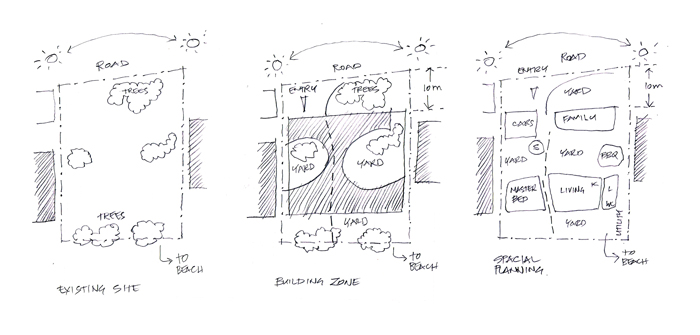 ROAD
TREES
TREES
TO
BEACH
EXISTING SITE
ROAD
ENTRY
TREES
10m
YARD
YARD
YARD
TO
BEACH
BUILDING ZONE
ROAD
ENTRY
YARD
10m
CARS
FAMILY
S
YARD
YARD
BBQ
MASTER
BED
LIVING
K
L
WC
YARD
UTILITY
TO
BEACH
SPACIAL
PLANNING